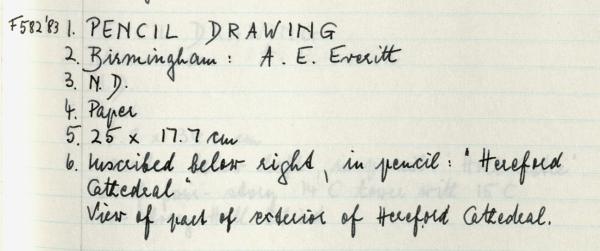 F582'83 1. PENCIL DRAWING
2. Birmingham: A. E. Everitt
3. N.D.
4. Paper
5. 25 x 17.7 cm
6. Inscribed below right, in pencil: "Hereford
Cathedral"
View of part of exterior of Hereford Cathedral.